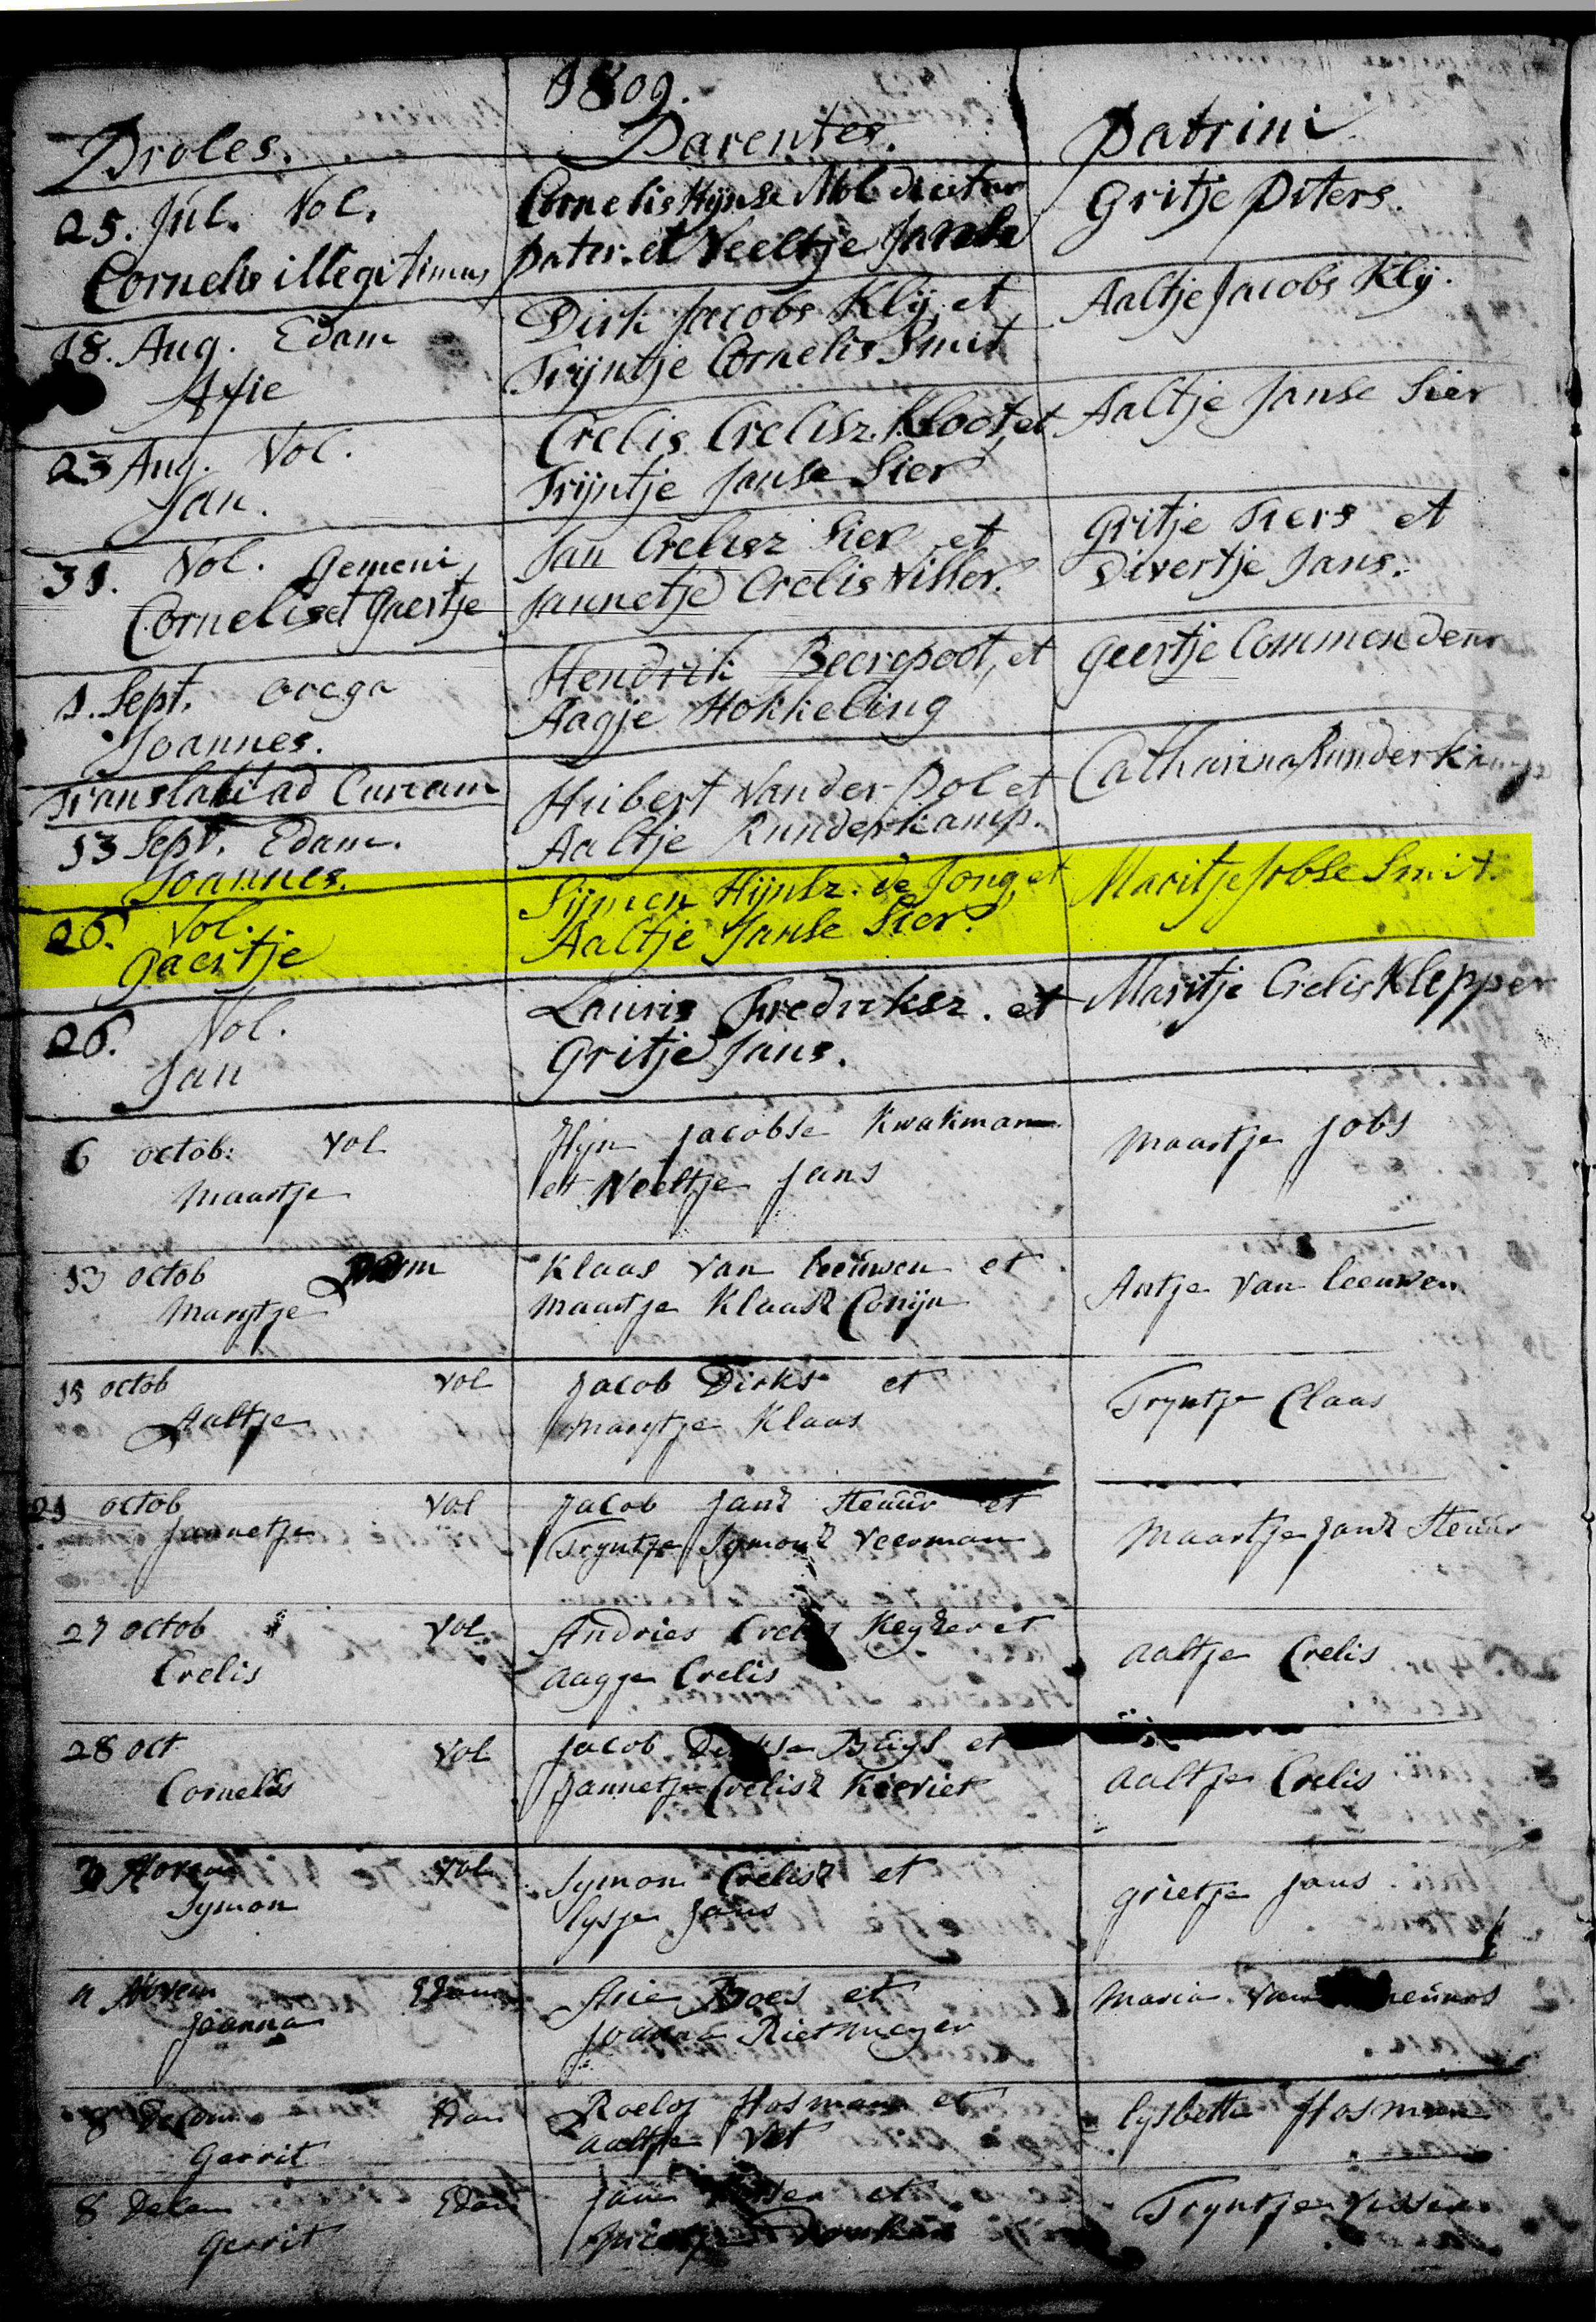 1809.
Proles. Parentes. Patrini
25. Jul. Vol. Cornelis Hijnse Mol dicitur Gritje Piters.
Cornelis illegitimus pater. et Neeltje Jans
18. Aug. Edam Dirk Jacobs Klij et Aaltje Jacobs Klij.
Afie Trijntje Cornelis Smit
23 Aug. Vol. Crelis Crelisz. Kloot, et Aaltje Janse Sier
Jan. Trijntje Janse Sier
31. Vol. gemeni Jan Crelisz Sier et Gritje Siers et
Cornelis et Gaertje Jannetje Crelis Visser. Divertje Jans.
1. Sept. Hendrik Beerepoot, et Geertje Commendeur
Joannes. Aagje Hokkeling
Translati ad Curam
13 Sept. Edam. Huibert Van der Pol et Catharina Runderkamp
Joannes. Aaltje Runderkamp.
26. Vol. Sijmen Hijnsz. de Jong, et Maritje Jobse Smit.
Gaertje Aaltje Janse Sier.
26. Vol. Lauris Fredriksz. et Maritje Crelis Klepper
Jan Gritje Jans.
6 octob: Vol Hijn Jacobse Kwakman Maartje Jobs
Maartje et Neeltje Jans
13 octob Klaas van leeuwen et Antje van leeuwen
Marijtje Maartje Klaasz Conijn
octob Vol Jacob Dirks et Tryntje Claas
Aaltje Marytje Klaas
octob Vol Jacob Janz Steuur et Maartje Janz Steuur
Jannetje Tryntje Symonz Veerman
27 octob Vol Andries Keyzer et Aaltje Crelis
Crelis Aagje Crelis
28 oct Vol Jacob Buys et Aaltje Crelis
Cornelis Jannetje Crelisz Kieviet
Novem Vol Symon Crelisz et grietje Jans
Symon lysje Jans
Novem Edam Arie Boes et Maria Van
Joanna Joanna Rietmeyer
8 Decem Edam Roelof Hosman et lysbeth Hosman
Gerrit Aaltje Vet
8 Decem Edam Jan et Tryntje Visser
Gerrit